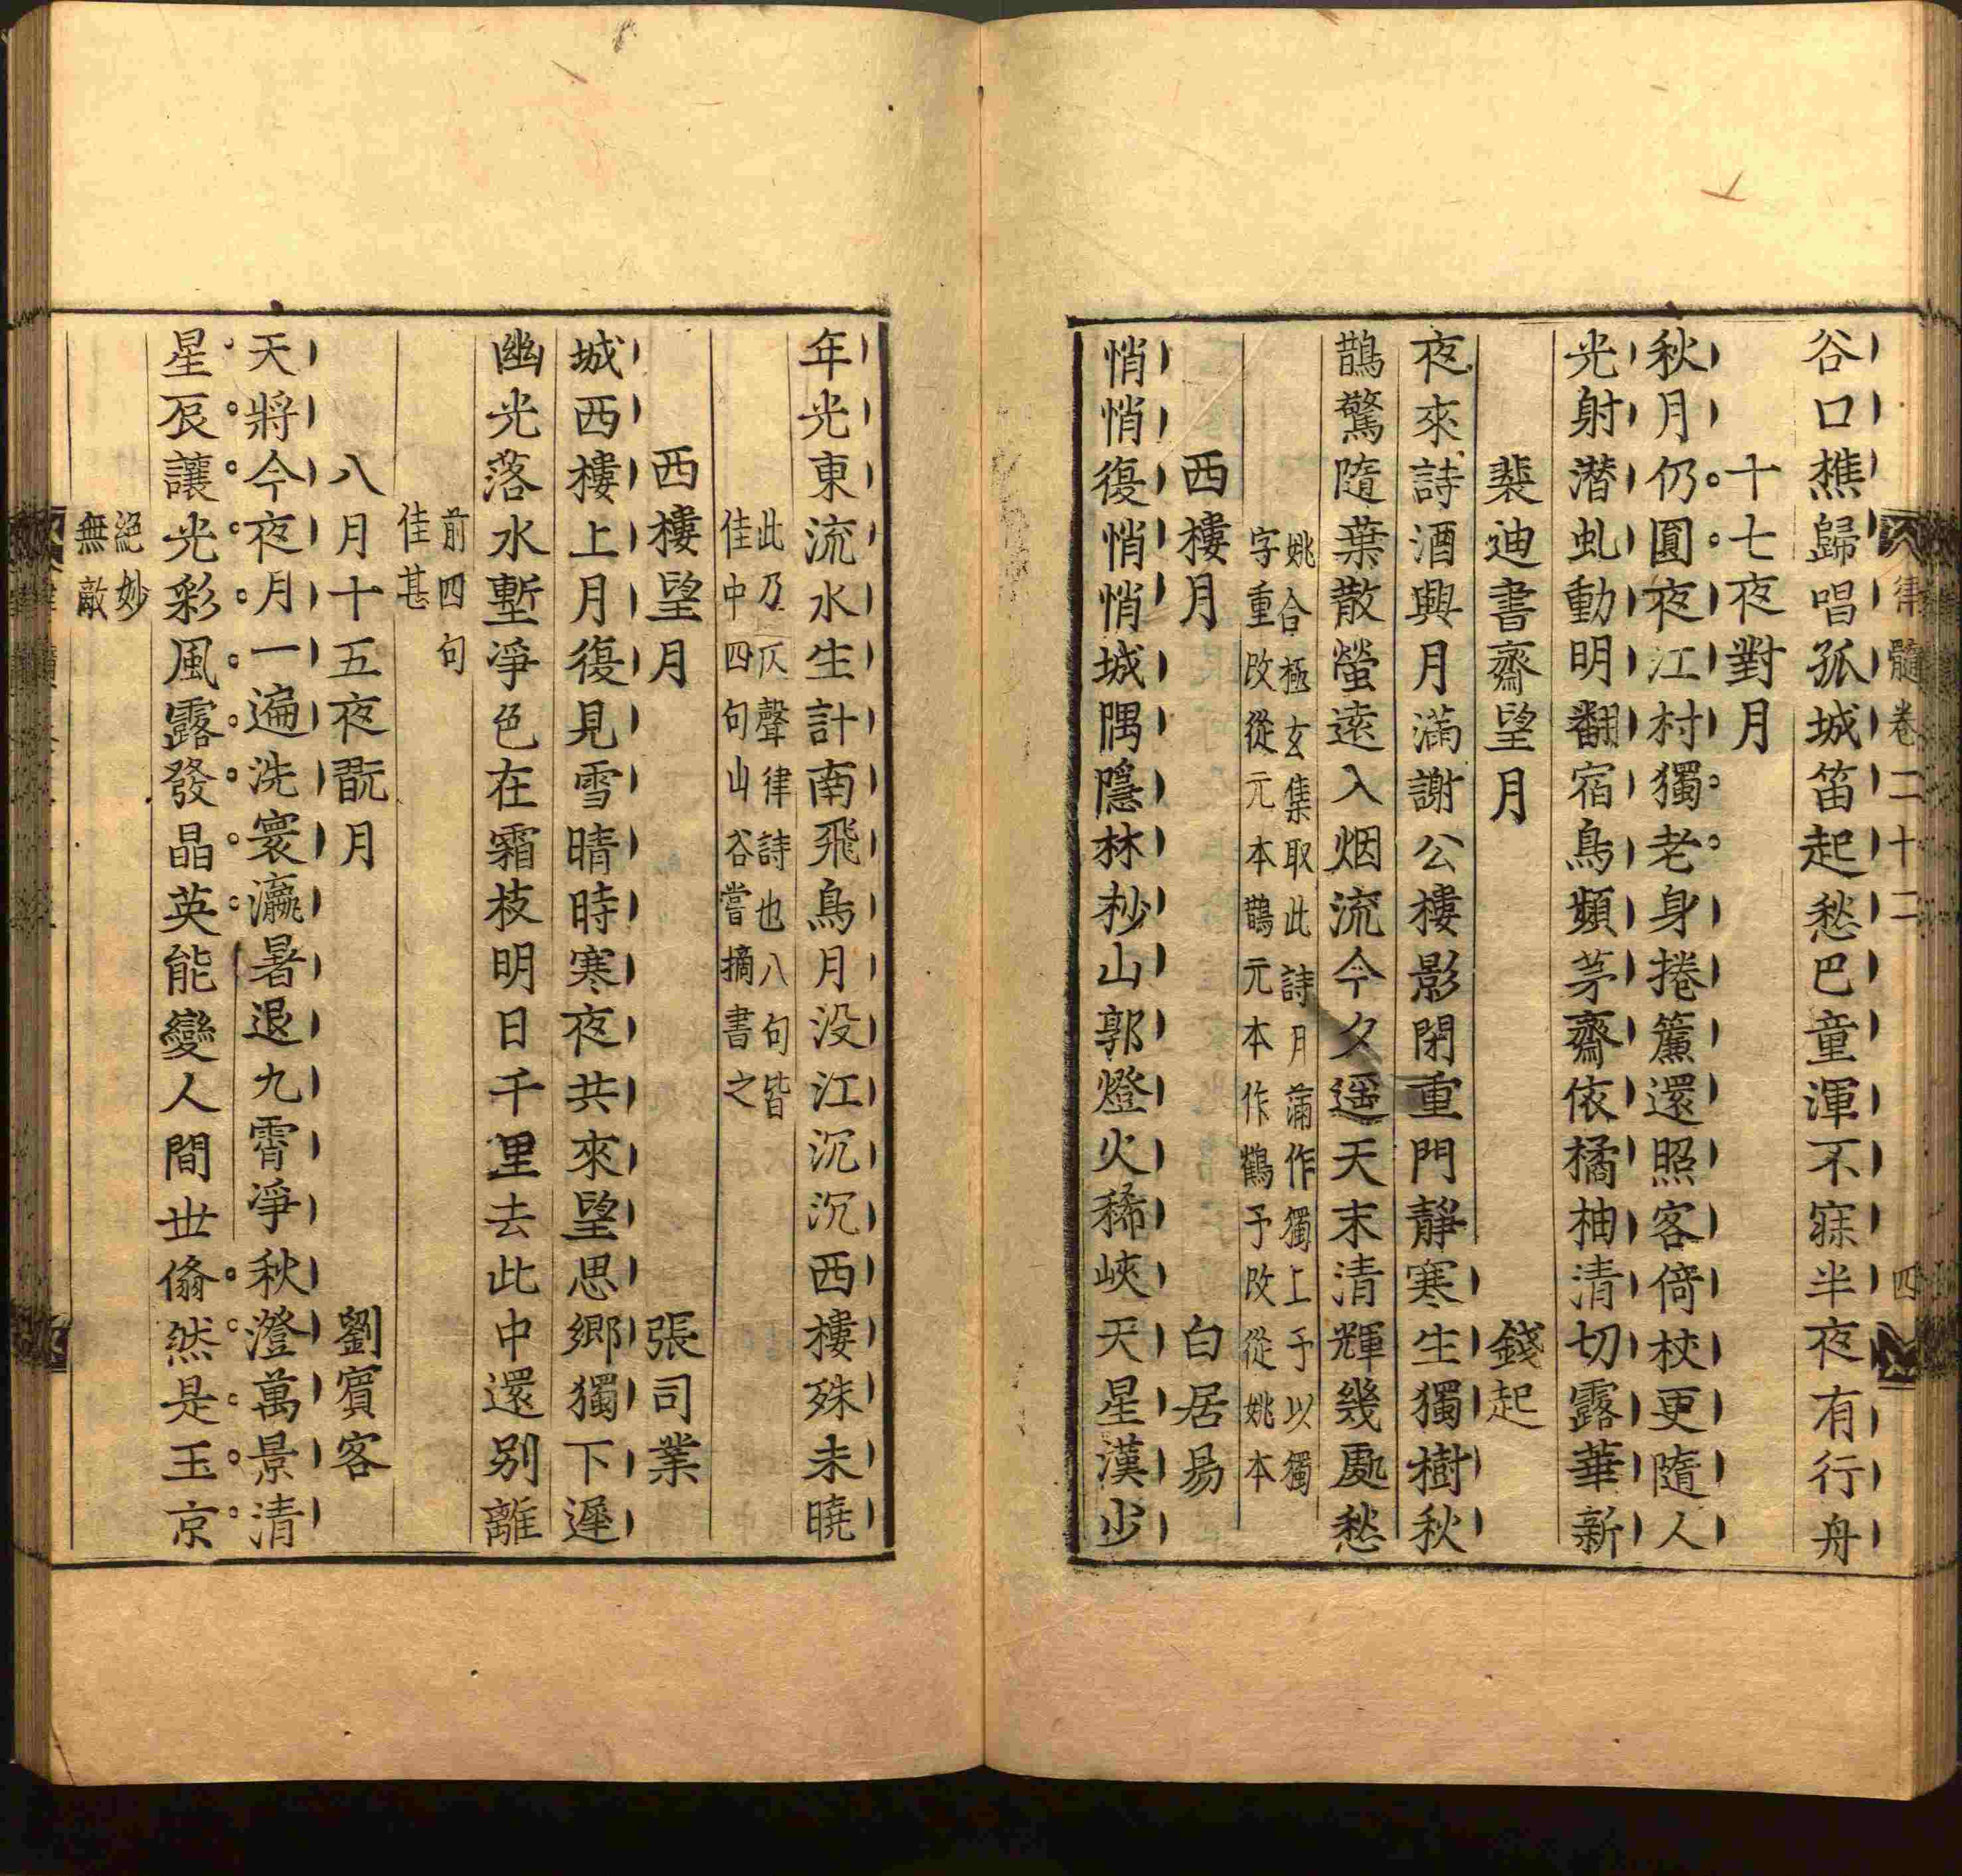 律髓卷二十二 四
谷口樵歸唱孤城笛起愁巴童渾不寐半夜有行舟
十七夜對月
秋月仍圓夜江村獨老身捲簾還照客倚杖更隨人
光射潛虬動明翻宿鳥頻茅齋依橘柚清切露華新
裴迪書齋望月 錢起
夜來詩酒興月滿謝公樓影閉重門静寒生獨樹秋
鵲驚隨葉散螢遠入烟流今夕遥天末清輝幾處愁
姚合極玄集取此詩月滿作獨上予以獨
字重改從元本鵲元本作鶴予改從姚本
西樓月 白居易
悄悄復悄悄城隅隱林杪山郭燈火稀峽天星漢少
年光東流水生計南飛鳥月没江沉沉西樓殊未曉
此乃仄聲律詩也八句皆
佳中四句山谷嘗摘書之
西樓望月 張司業
城西樓上月復見雪晴時寒夜共來望思鄉獨下遲
幽光落水塹淨色在霜枝明日千里去此中還别離
前四句
佳甚
八月十五夜翫月 劉賓客
天將今夜月一遍洗寰瀛暑退九霄淨秋澄萬景清
星辰讓光彩風露發晶英能變人間世翛然是玉京
絕妙
無敵